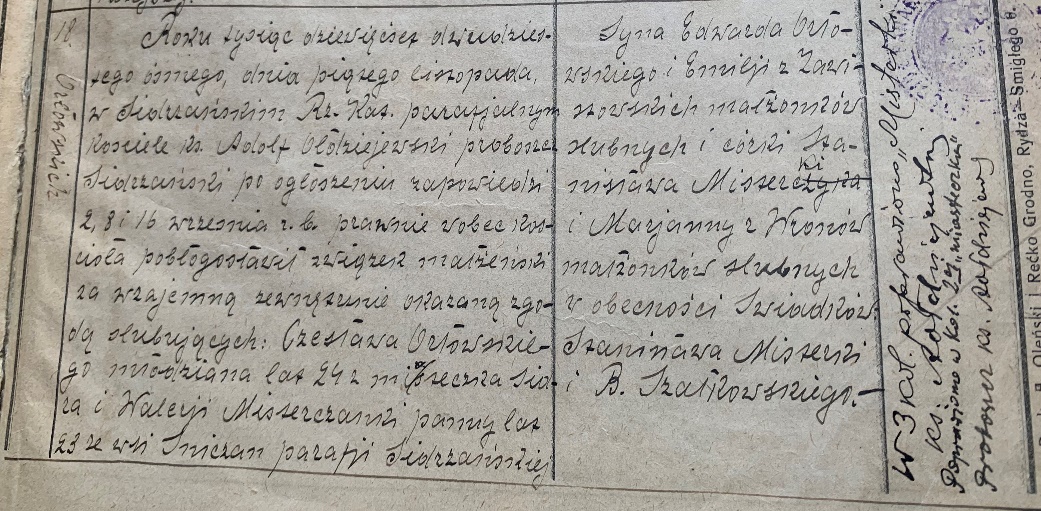 18.
Śniczanach
Roku tysiąc dziewięćset dwudzies-
tego ósmego, dnia piątego listopada,
w Sidrzańskim Rz. Kat. parafjalnym
Kościele ks. Adolf Ołdziejewski proboszcz
Sidrzański po ogłoszeniu zapowiedzi
2, 8 i 16 września r. b. prawnie wobec Koś-
cioła pobłogosławił związek małżeński
za wzajemną zewnętrznie okazaną zgo-
dą ślubujących: Czesława Orłowskie-
go młodziana lat 24 z miasteczka Sid-
ra i Walerji Misserczanki panny lat
23 ze wsi Śniczan parafji Sidrzańskiej
Syna Edwarda Orło-
wskiego i Emilji z Zawi-
stowskich małżonków
ślubnych i córki Sta-
nisława Misserczyka
ki
i Marjanny z Wronów
małżonków ślubnych
w obecności Świadków:
Stanisława Misserki
i B. Szatkowskiego.
W 3 kol. poprawiono „Misserki"
Ks.
Poprawiono w kol. 2ej „miasteczka"
Proboszcz ks.
Oleński i Recko Grodno, Rydza-Śmigłego 8.